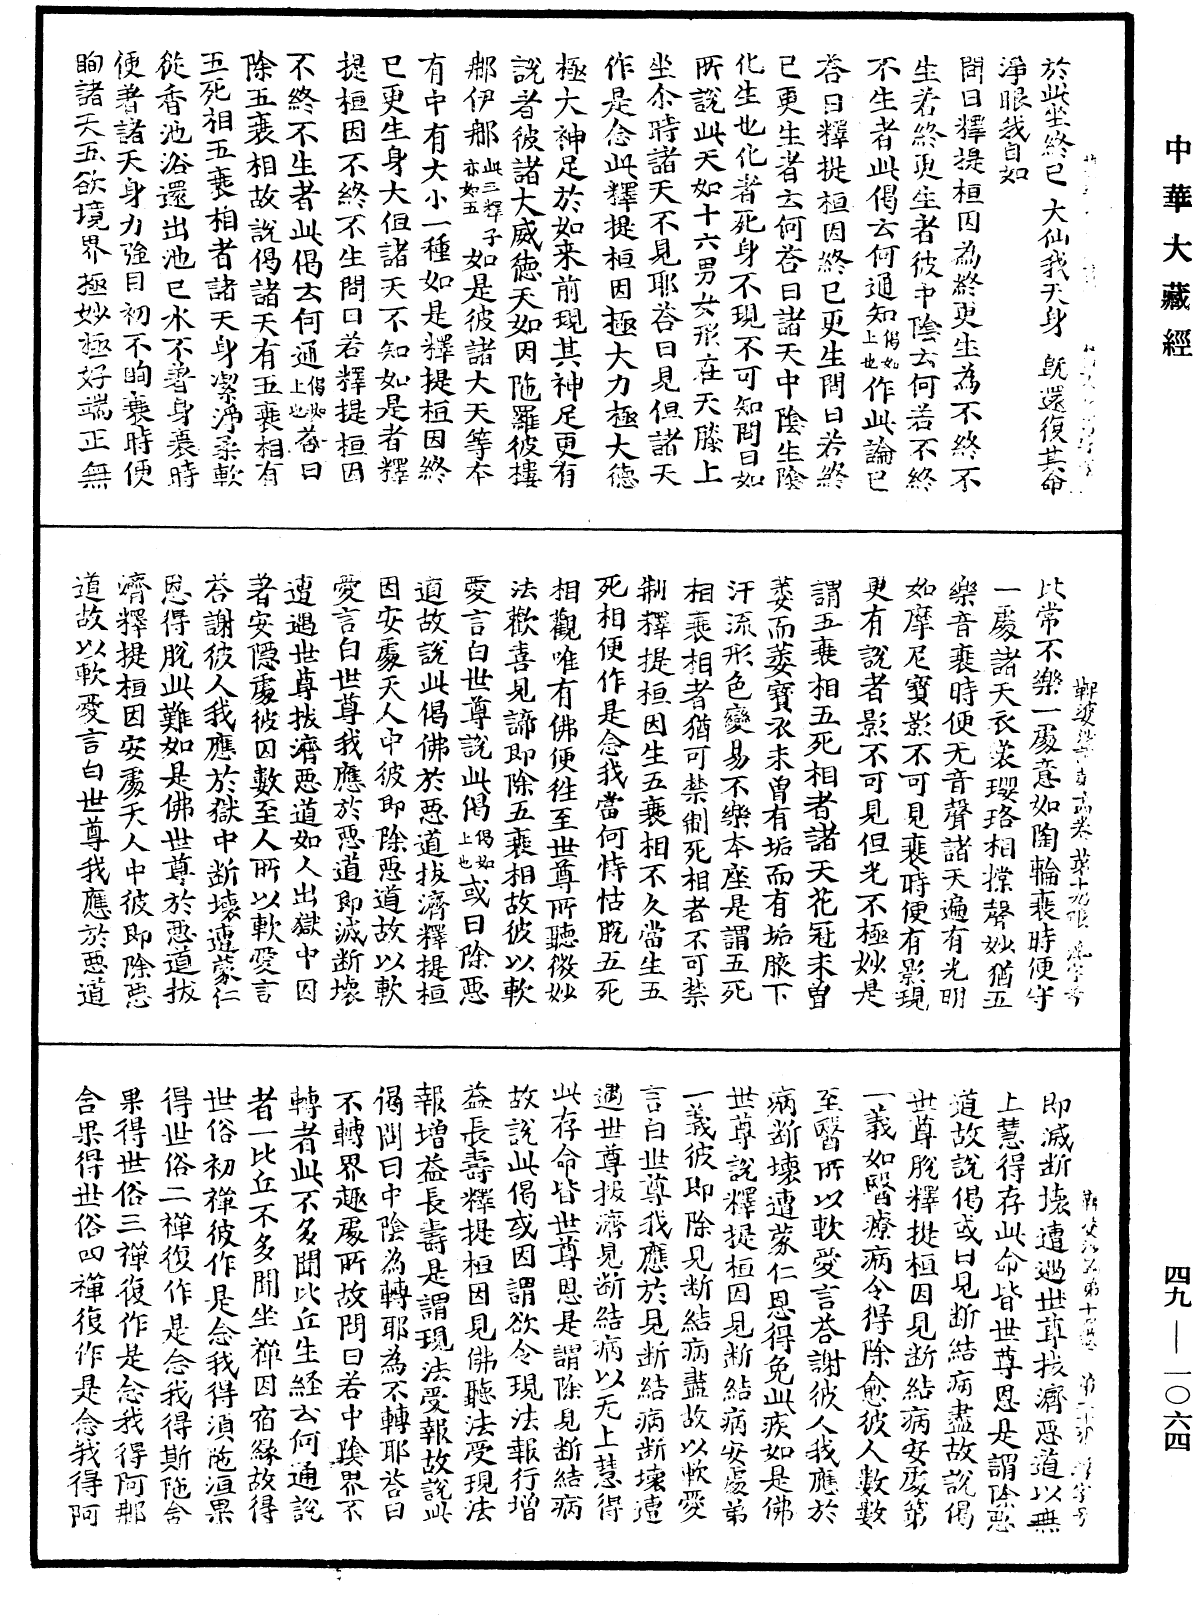 中華大藏經
於此坐終已　大仙我天身　既還復其命
淨眼我自如
問曰釋提桓因為終更生為不終不
生若終更生者彼中陰云何若不終
不生者此偈云何通知偈如上也作此論已
荅曰釋提桓因終已更生問曰若終
已更生者云何荅曰諸天中陰生陰
化生也化者死身不現不可知問曰如
所說此天如十六男女形在天膝上
坐尒時諸天不見耶荅曰見但諸天
作是念此釋提桓因極大力極大德
極大神足於如来前現其神足更有
說者彼諸大威德天如因陁羅彼樓
那伊那此三釋子亦如五如是彼諸大天等本
有中有大小一種如是釋提桓因終
已更生身大但諸天不知如是者釋
提桓因不終不生問曰若釋提桓因
不終不生者此偈云何通偈如上也荅曰
除五衰相故說偈諸天有五衰相有
五死相五衰相者諸天身潔淨柔軟
從香池浴還出池已水不著身衰時
便著諸天身力強目初不眴衰時便
眴諸天五欲境界極妙極好端正無
比常不樂一處意如陶輪衰時便守
一處諸天衣裳瓔珞相摚聲妙猶五
樂音衰時便无音聲諸天遍有光明
如摩尼寶影不可見衰時便有影現
更有說者影不可見但光不極妙是
謂五衰相五死相者諸天花冠未曾
萎而萎寶衣未曽有垢而有垢腋下
汗流形色變易不樂本座是謂五死
相衰相者猶可禁制死相者不可禁
制釋提桓因生五衰相不久當生五
死相便作是念我當何恃怙脫五死
相觀唯有佛便往至世尊所聽微妙
法歡喜見諦即除五衰相故彼以軟
愛言白世尊說此偈偈如上也或曰除惡
道故說此偈佛於惡道拔濟釋提桓
因安處天人中彼即除惡道故以軟
愛言白世尊我應於惡道即滅斷壞
遭遇世尊拔濟惡道如人出獄中囚
著安隱處彼囚數至人所以軟愛言
荅謝彼人我應於獄中斷壞遭蒙仁
恩得脫此難如是佛世尊於惡道拔
濟釋提桓因安處天人中彼即除惡
道故以軟愛言白世尊我應於惡道
即滅斷壞遭遇世尊拔濟惡道以無
上慧得存此命皆世尊恩是謂除惡
道故說偈或曰見斷結病盡故說偈
世尊脫釋提桓因見斷結病安處第
一義如醫療病令得除愈彼人數數
至醫所以軟愛言荅謝彼人我應於
病斷壞遭蒙仁恩得免此疾如是佛
世尊說釋提桓因見斷結病安處第
一義彼即除見斷結病盡故以軟愛
言白世尊我應於見斷結病斷壞遭
遇世尊拔濟見斷結病以无上慧得
此存命皆世尊恩是謂除見斷結病
故說此偈或因謂欲令現法報行增
益長壽釋提桓因見佛聽法受現法
報增益長壽是謂現法受報故說此
偈問曰中陰為轉耶為不轉耶荅曰
不轉界趣處所故問曰若中陰界不
轉者此不多聞比丘生經云何通說
者一比丘不多聞坐禪因宿緣故得
世俗初禪彼作是念我得須陁洹果
得世俗二禪復作是念我得斯陁含
果得世俗三禪復作是念我得阿那
含果得世俗四禪復作是念我得阿
四九—一〇六四